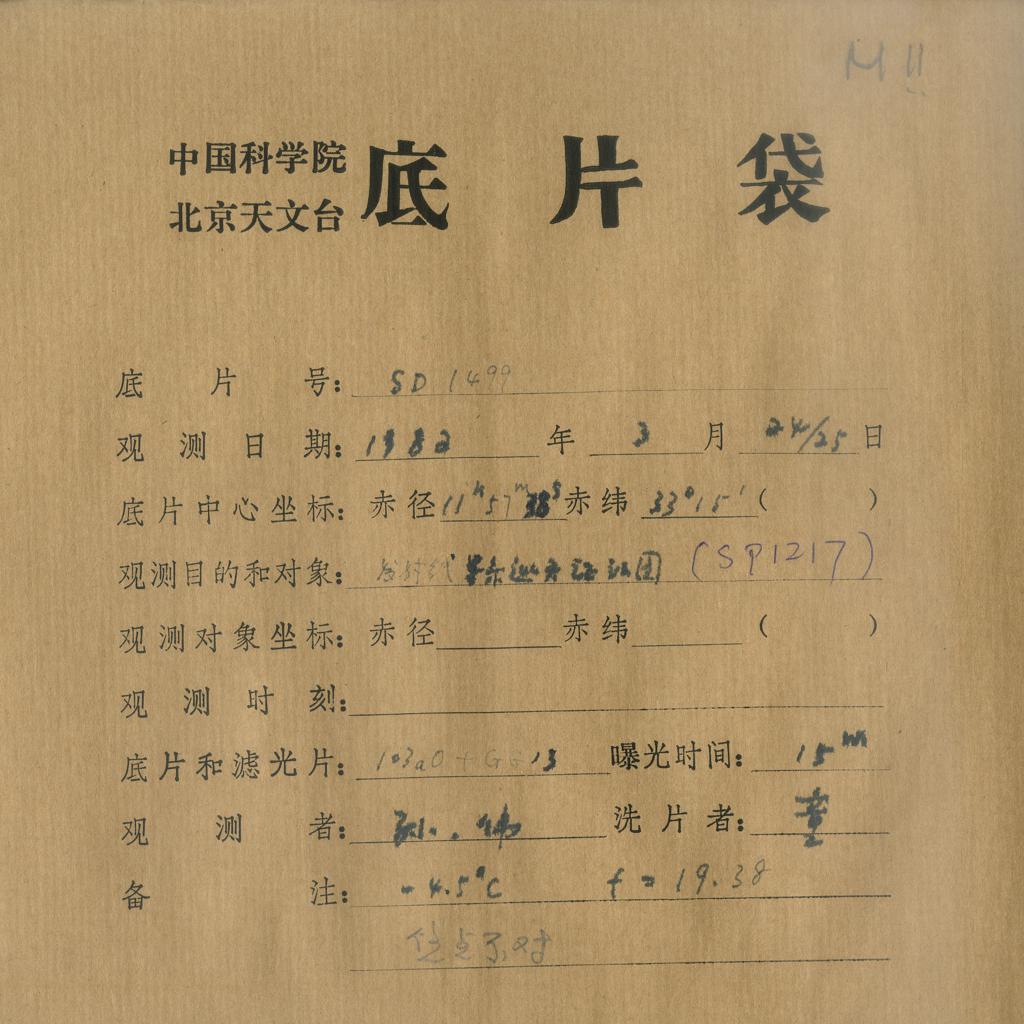 M 11
中国科学院
北京天文台
底片袋
底片号: SD 1499
观测日期: 1982 年 3 月 24/25 日
底片中心坐标: 赤径 11h57m38s 赤纬 33°15′ ( )
观测目的和对象: 团 (SP1217)
观测对象坐标: 赤径 赤纬 ( )
观测时刻:
底片和滤光片: 103aO + GG13 曝光时间: 15m
观测者: 洗片者: 董
备注: -4.5°C f = 19.38
不对